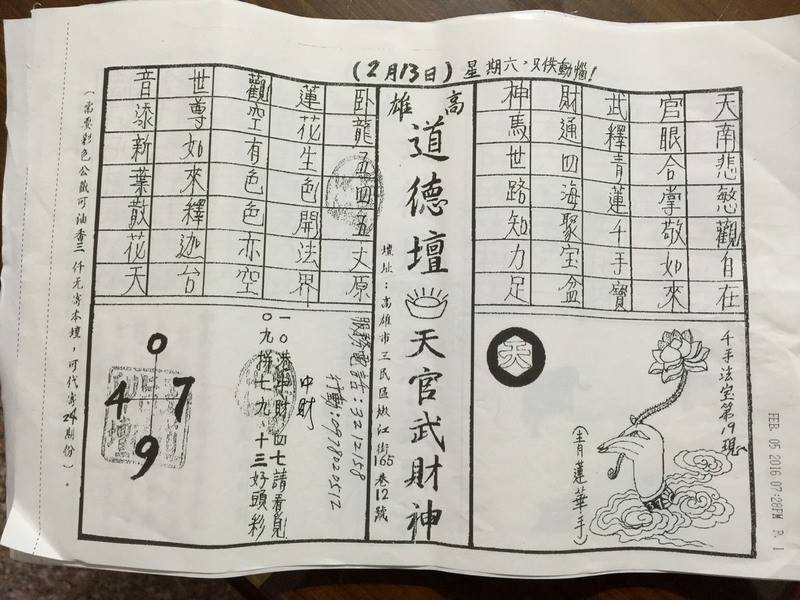 (2月13日)星期六,只供動惱!
天南悲慜觀自在
官眼合掌敬如來
武釋青蓮千手寶
財通四海聚宝盆
神馬世路知力足
高雄
道德壇
天官武財神
壇址:高雄市三民區嫩江街165巷12號
卧龍五四五丈原
蓮花生色開法界
觀空有色色亦空
世尊如來釋迦台
音添新葉散花天
千手法宝第19現
(青蓮華手)
天
服務電話:3212158
行動:0978220512
中財
一0港中財四七請看覓
0九拼七九十三好頭彩
0
4 7
9
(需要彩色公籤可油香三仟元寄本壇,可代寄24期份)。
FEB. 05 2016 07:28PM P. 1